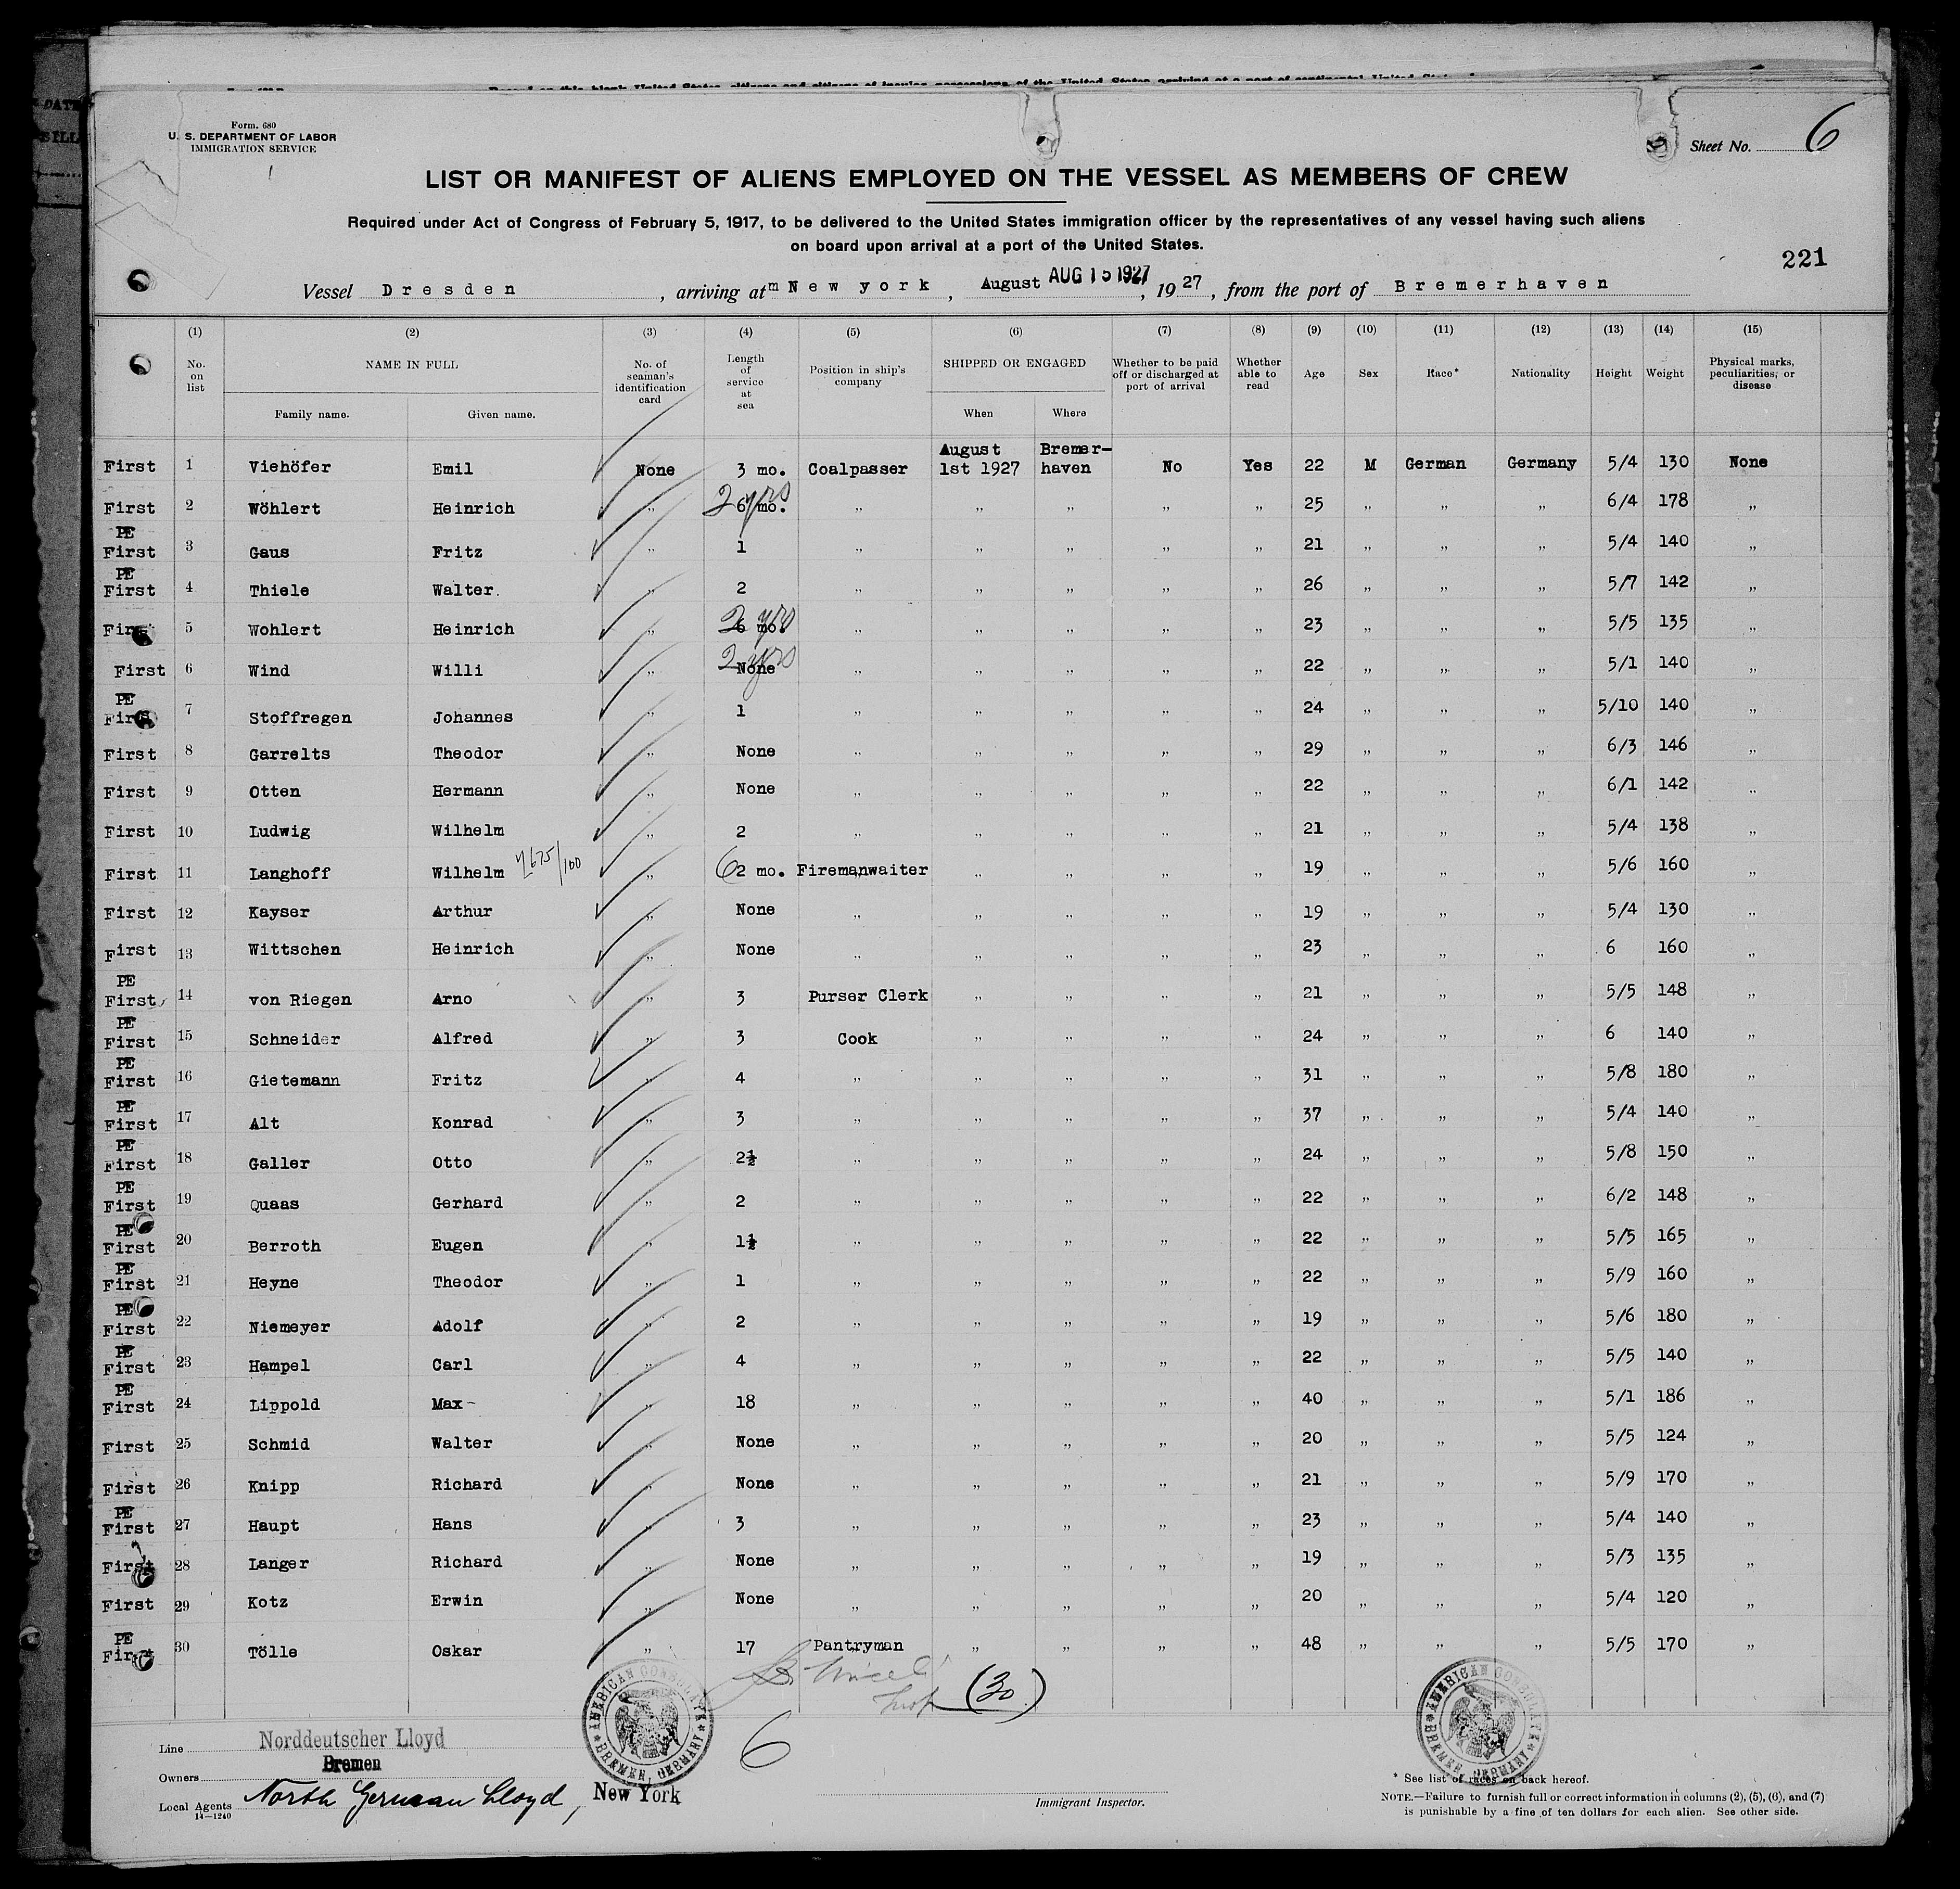 DATE
BILL
Form. 680
U. S. DEPARTMENT OF LABOR
IMMIGRATION SERVICE
Sheet No. 6
LIST OR MANIFEST OF ALIENS EMPLOYED ON THE VESSEL AS MEMBERS OF CREW
Required under Act of Congress of February 5, 1917, to be delivered to the United States immigration officer by the representatives of any vessel having such aliens
on board upon arrival at a port of the United States.
221
Vessel Dresden, arriving at New york, August AUG 15 1927, 1927, from the port of Bremerhaven
(1) (2) (3) (4) (5) (6) (7) (8) (9) (10) (11) (12) (13) (14) (15)
No. on list NAME IN FULL Family name. Given name. No. of seaman's identification card Length of service at sea Position in ship's company SHIPPED OR ENGAGED When Where Whether to be paid off or discharged at port of arrival Whether able to read Age Sex Race* Nationality Height Weight Physical marks, peculiarities, or disease
First 1 Viehöfer Emil None 3 mo. Coalpasser August 1st 1927 Bremer-haven No Yes 22 M German Germany 5/4 130 None
First 2 Wöhlert Heinrich „ 6 mo. 2 yrs „ „ „ „ „ 25 „ „ „ 6/4 178 „
PE First 3 Gaus Fritz „ 1 „ „ „ „ „ 21 „ „ „ 5/4 140 „
PE First 4 Thiele Walter. „ 2 „ „ „ „ „ 26 „ „ „ 5/7 142 „
First 5 Wohlert Heinrich „ 6 mo. 2 yrs „ „ „ „ „ 23 „ „ „ 5/5 135 „
First 6 Wind Willi „ None 2 yrs „ „ „ „ „ 22 „ „ „ 5/1 140 „
PE First 7 Stoffregen Johannes „ 1 „ „ „ „ „ 24 „ „ „ 5/10 140 „
First 8 Garrelts Theodor „ None „ „ „ „ „ 29 „ „ „ 6/3 146 „
First 9 Otten Hermann „ None „ „ „ „ „ 22 „ „ „ 6/1 142 „
First 10 Ludwig Wilhelm „ 2 „ „ „ „ „ 21 „ „ „ 5/4 138 „
First 11 Langhoff Wilhelm „ 6 2 mo. Firemanwaiter „ „ „ „ 19 „ „ „ 5/6 160 „
First 12 Kayser Arthur „ None „ „ „ „ „ 19 „ „ „ 5/4 130 „
First 13 Wittschen Heinrich „ None „ „ „ „ „ 23 „ „ „ 6 160 „
PE First 14 von Riegen Arno „ 3 Purser Clerk „ „ „ „ 21 „ „ „ 5/5 148 „
PE First 15 Schneider Alfred „ 3 Cook „ „ „ „ 24 „ „ „ 6 140 „
PE First 16 Gietemann Fritz „ 4 „ „ „ „ „ 31 „ „ „ 5/8 180 „
PE First 17 Alt Konrad „ 3 „ „ „ „ „ 37 „ „ „ 5/4 140 „
PE First 18 Galler Otto „ 2½ „ „ „ „ „ 24 „ „ „ 5/8 150 „
PE First 19 Quaas Gerhard „ 2 „ „ „ „ „ 22 „ „ „ 6/2 148 „
PE First 20 Berroth Eugen „ 1½ „ „ „ „ „ 22 „ „ „ 5/5 165 „
PE First 21 Heyne Theodor „ 1 „ „ „ „ „ 22 „ „ „ 5/9 160 „
PE First 22 Niemeyer Adolf „ 2 „ „ „ „ „ 19 „ „ „ 5/6 180 „
PE First 23 Hampel Carl „ 4 „ „ „ „ „ 22 „ „ „ 5/5 140 „
PE First 24 Lippold Max „ 18 „ „ „ „ „ 40 „ „ „ 5/1 186 „
First 25 Schmid Walter „ None „ „ „ „ „ 20 „ „ „ 5/5 124 „
First 26 Knipp Richard „ None „ „ „ „ „ 21 „ „ „ 5/9 170 „
PE First 27 Haupt Hans „ 3 „ „ „ „ „ 23 „ „ „ 5/4 140 „
First 28 Langer Richard „ None „ „ „ „ „ 19 „ „ „ 5/3 135 „
First 29 Kotz Erwin „ None „ „ „ „ „ 20 „ „ „ 5/4 120 „
PE First 30 Tölle Oskar „ 17 Pantryman „ „ „ „ 48 „ „ „ 5/5 170 „
(30)
AMERICAN CONSULATE BREMEN, GERMANY
AMERICAN CONSULATE BREMEN, GERMANY
6
Line Norddeutscher Lloyd
Bremen
Owners
Local Agents North German Lloyd, New York
14—1240
Immigrant Inspector.
* See list of races on back hereof.
NOTE.—Failure to furnish full or correct information in columns (2), (5), (6), and (7)
is punishable by a fine of ten dollars for each alien. See other side.